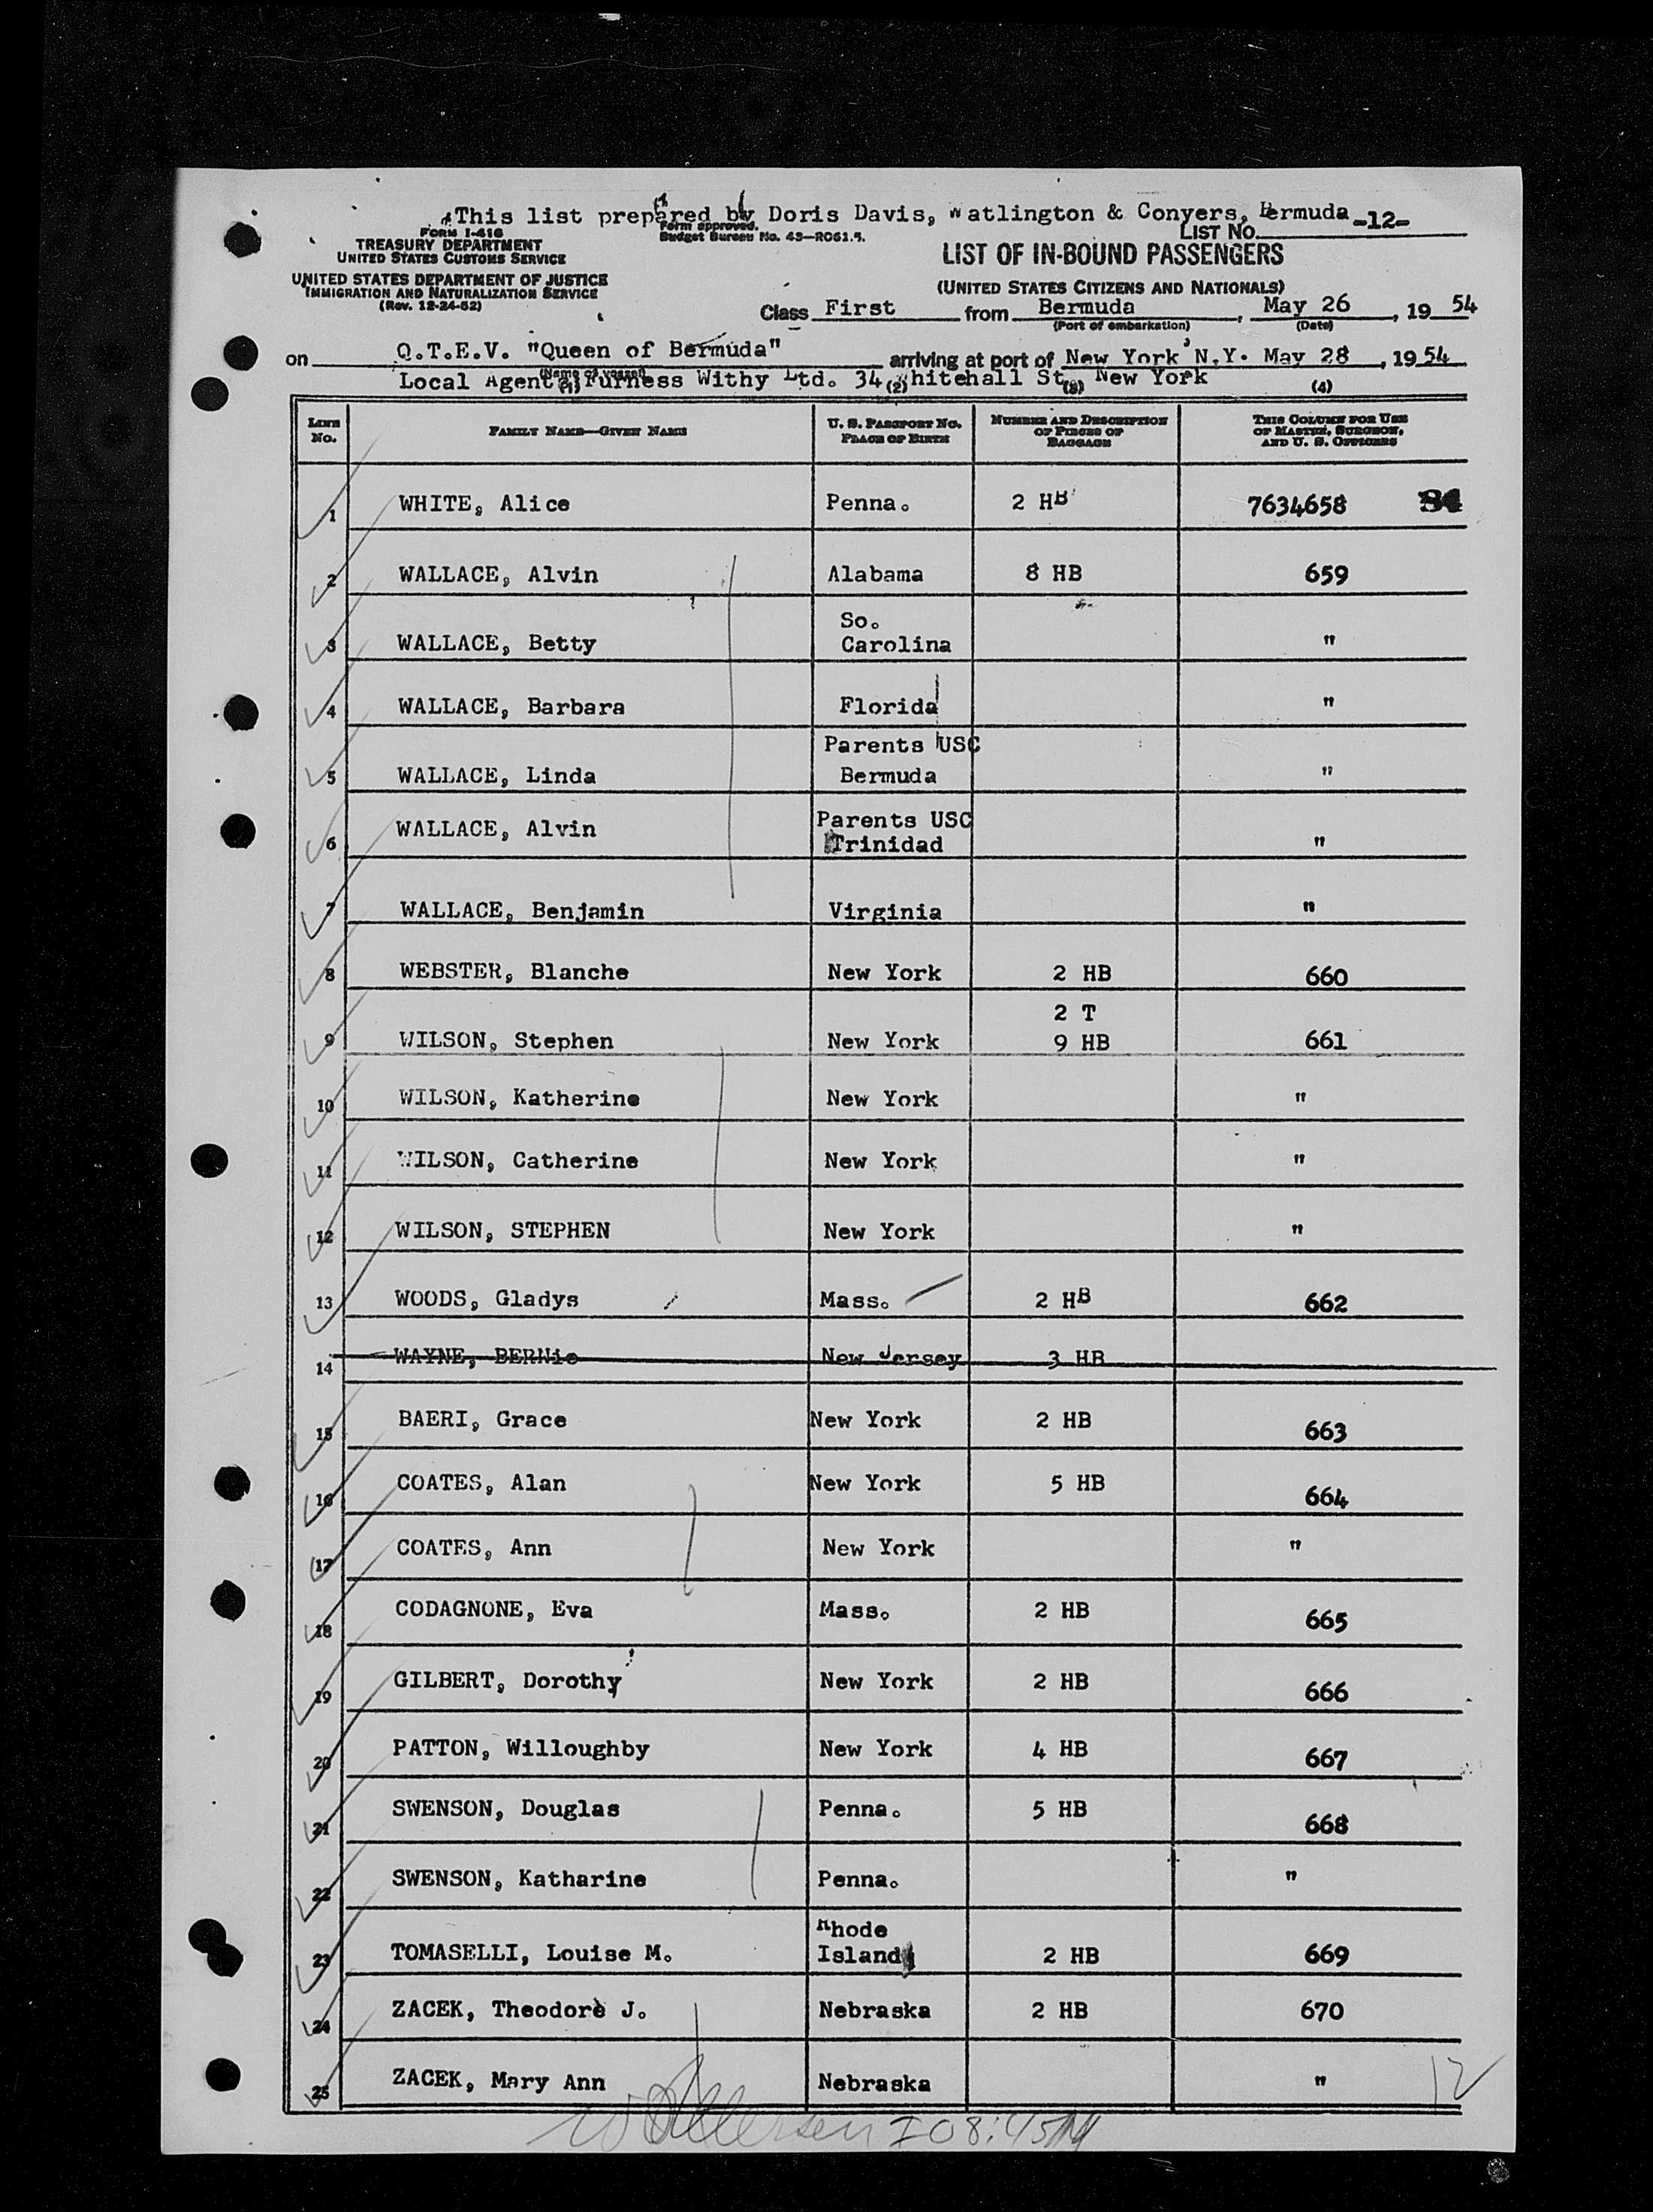 This list prepared by Doris Davis, Watlington & Conyers, Bermuda
FORM I-416
TREASURY DEPARTMENT
UNITED STATES CUSTOMS SERVICE
UNITED STATES DEPARTMENT OF JUSTICE
IMMIGRATION AND NATURALIZATION SERVICE
(Rev. 12-24-52)
Form approved.
Budget Bureau No. 43—R061.5.
LIST NO. -12-
LIST OF IN-BOUND PASSENGERS
(UNITED STATES CITIZENS AND NATIONALS)
Class First from Bermuda, May 26, 19 54
(Port of embarkation) (Date)
on Q.T.E.V. "Queen of Bermuda" arriving at port of New York N.Y. May 28, 19 54
(Name of vessel)
Local Agents Furness Withy Ltd. 34 Whitehall St., New York
(1) (2) (3) (4)
LINE No. FAMILY NAME—GIVEN NAME U. S. PASSPORT NO. PLACE OF BIRTH NUMBER AND DESCRIPTION OF PIECES OF BAGGAGE THIS COLUMN FOR USE OF MASTER, SURGEON, AND U. S. OFFICERS
1 WHITE, Alice Penna. 2 HB 7634658
2 WALLACE, Alvin Alabama 8 HB 659
3 WALLACE, Betty So. Carolina "
4 WALLACE, Barbara Florida "
5 WALLACE, Linda Parents USC Bermuda "
6 WALLACE, Alvin Parents USC Trinidad "
7 WALLACE, Benjamin Virginia "
8 WEBSTER, Blanche New York 2 HB 660
9 WILSON, Stephen New York 2 T 9 HB 661
10 WILSON, Katherine New York "
11 WILSON, Catherine New York "
12 WILSON, STEPHEN New York "
13 WOODS, Gladys Mass. 2 HB 662
14 WAYNE, BERNie New Jersey 3 HB
15 BAERI, Grace New York 2 HB 663
16 COATES, Alan New York 5 HB 664
17 COATES, Ann New York "
18 CODAGNONE, Eva Mass. 2 HB 665
19 GILBERT, Dorothy New York 2 HB 666
20 PATTON, Willoughby New York 4 HB 667
21 SWENSON, Douglas Penna. 5 HB 668
22 SWENSON, Katharine Penna. "
23 TOMASELLI, Louise M. Rhode Island 2 HB 669
24 ZACEK, Theodore J. Nebraska 2 HB 670
25 ZACEK, Mary Ann Nebraska "
12